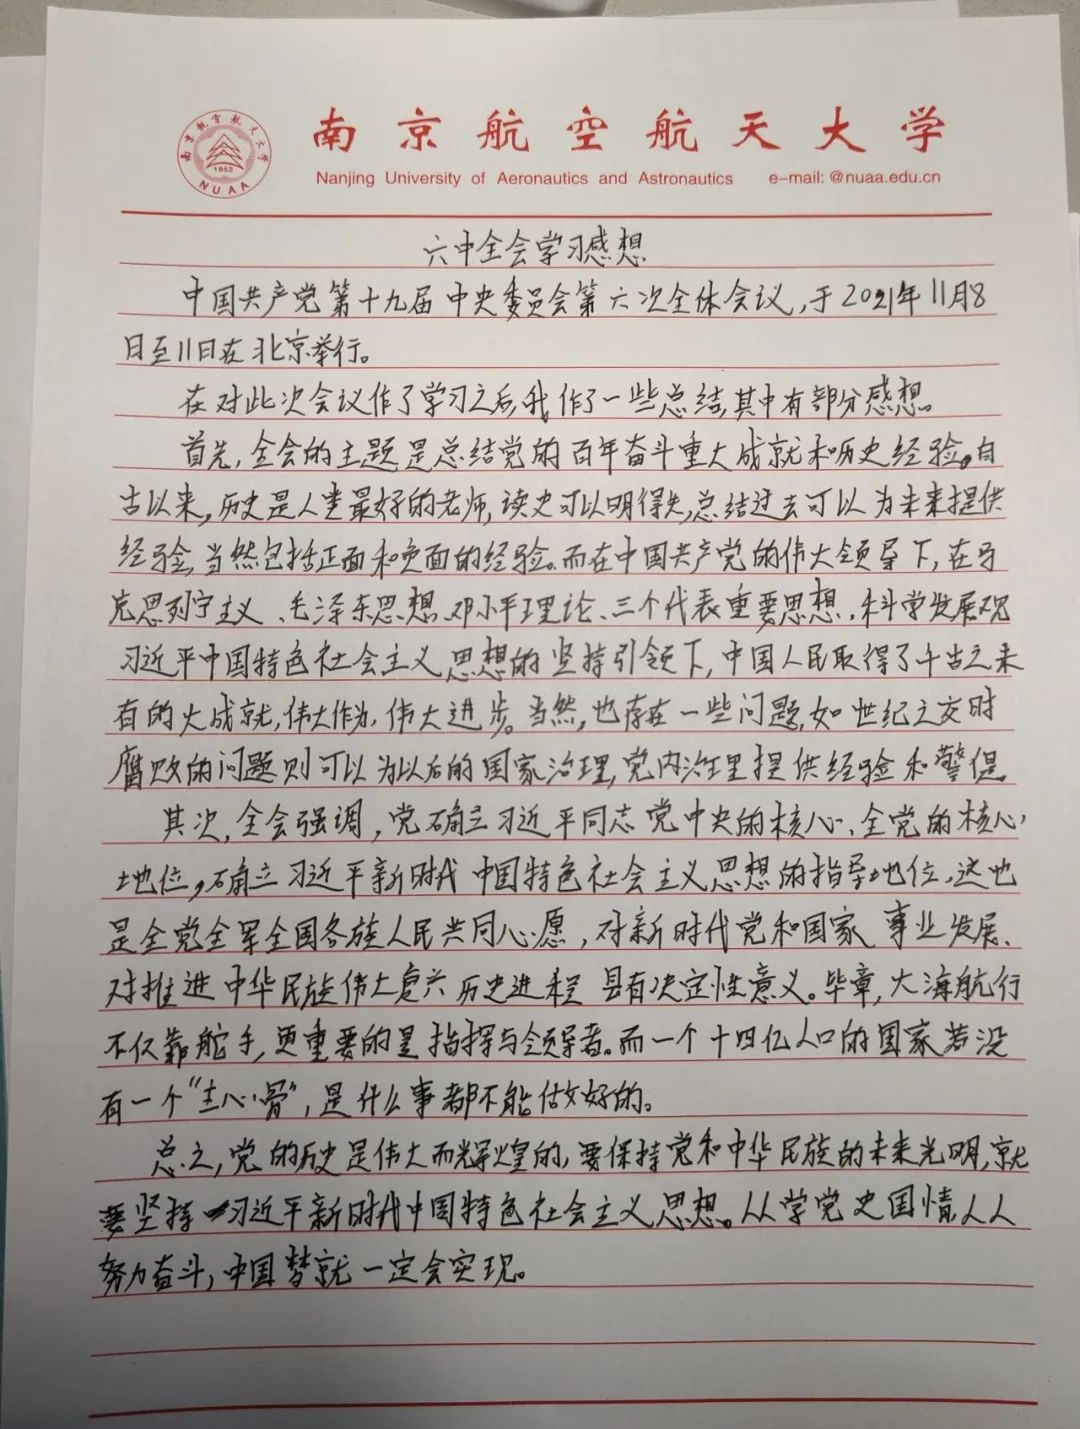 南京航空航天大学
南京航空航天大学
1952
NUAA
Nanjing University of Aeronautics and Astronautics e-mail: @nuaa.edu.cn
六中全会学习感想
中国共产党第十九届中央委员会第六次全体会议,于2021年11月8
日至11日在北京举行。
在对此次会议作了学习之后,我作了一些总结,其中有部分感想。
首先,全会的主题是总结党的百年奋斗重大成就和历史经验。自
古以来,历史是人类最好的老师,读史可以明得失,总结过去可以为未来提供
经验,当然包括正面和负面的经验。而在中国共产党的伟大领导下,在马
克思列宁主义、毛泽东思想、邓小平理论、三个代表重要思想、科学发展观
习近平中国特色社会主义思想的坚持引领下,中国人民取得了千古之未
有的大成就,伟大作为,伟大进步。当然,也存在一些问题,如世纪之交时
腐败的问题则可以为以后的国家治理,党内治理提供经验和警惕。
其次,全会强调,党确立习近平同志党中央的核心、全党的核心
地位,确立习近平新时代中国特色社会主义思想的指导地位,这也
是全党全军全国各族人民共同心愿,对新时代党和国家事业发展、
对推进中华民族伟大复兴历史进程具有决定性意义。毕章,大海航行
不仅靠舵手,更重要的是指挥与领导者。而一个十四亿人口的国家若没
有一个“主心骨”,是什么事都不能做好的。
总之,党的历史是伟大而辉煌的,要保持党和中华民族的未来光明,就
要坚持习近平新时代中国特色社会主义思想。从学党史国情人人
努力奋斗,中国梦就一定会实现。